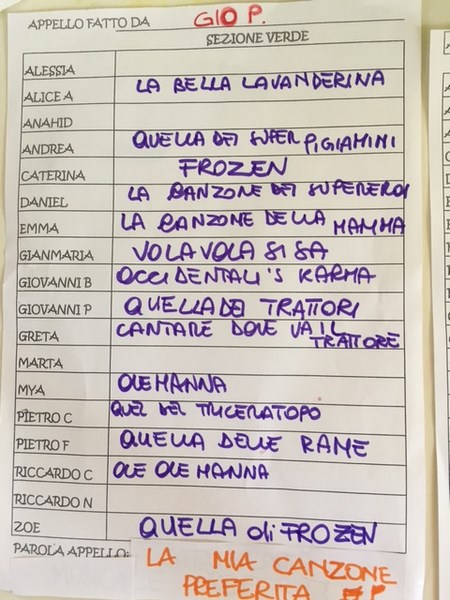 APPELLO FATTO DA GIO P.
SEZIONE VERDE
ALESSIA
ALICE A LA BELLA LAVANDERINA
ANAHID
ANDREA QUELLA DEI SUPER PIGIAMINI
CATERINA FROZEN
DANIEL LA CANZONE DEI SUPEREROI
EMMA LA CANZONE DELLA MAMMA
GIANMARIA VOLA VOLA SI SA
GIOVANNI B OCCIDENTALI'S KARMA
GIOVANNI P QUELLA DEI TRATTORI
GRETA CANTARE DOVE VA IL
TRATTORE
MARTA
MYA OLE MANNA
PIETRO C QUEL DEL TRICERATOPO
PIETRO F QUELLA DELLE RAME
RICCARDO C OLE OLE MANNA
RICCARDO N
ZOE QUELLA di FROZEN
PAROLA APPELLO: LA MIA CANZONE
PREFERITA